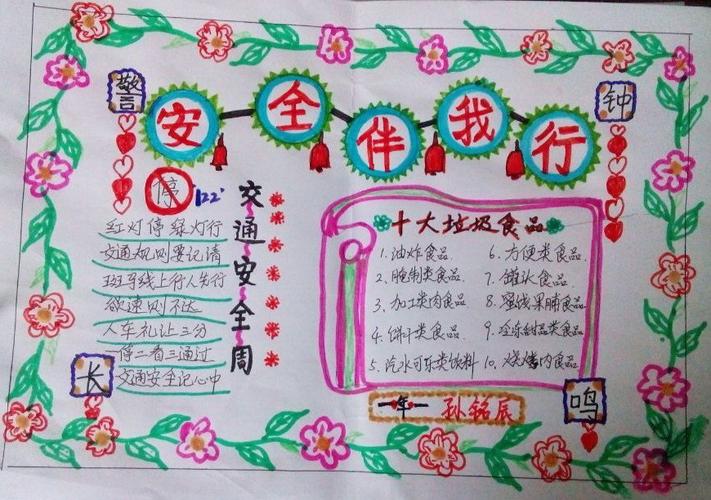 安全伴我行
警
钟
长
鸣
停 122
交通安全周
红灯停绿灯行
交通规则要记请
斑马线上行人先行
欲速则不达
人车礼让三分
停二看三通过
交通安全记心中
十大垃圾食品
1.油炸食品
2.腌制类食品
3.加工类肉食品
4.饼干类食品
5.汽水可乐类饮料
6.方便类食品
7.罐头食品
8.蜜饯果脯食品
9.冷冻甜品类食品
10.烧烤肉食品
一年一 孙铭